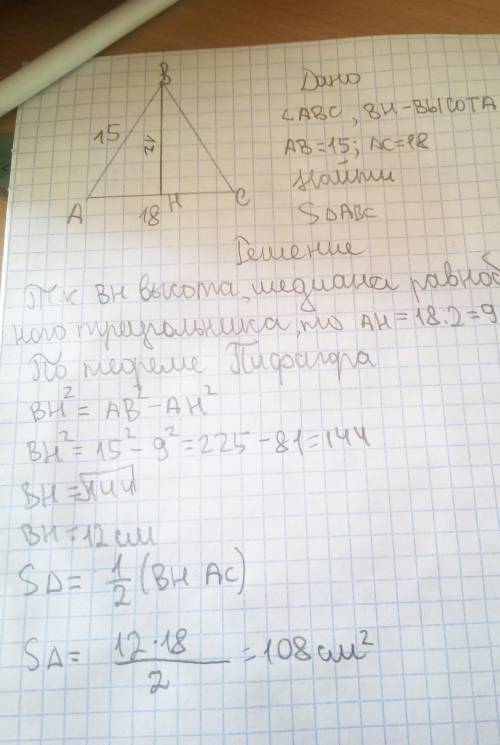 B
15
12
A
18
H
C
Дано
∠ABC, BH-высота
AB=15; AC=18
Найти
SΔABC
Решение
Т.к BH высота, медиана равноб
ного треугольника, то AH=18:2=9
По теореме Пифагора
BH²= AB²-AH²
BH²= 15²-9²=225-81=144
BH=√144
BH=12см
SΔ= 1/2 (BH AC)
SΔ= 12·18/2 =108см²